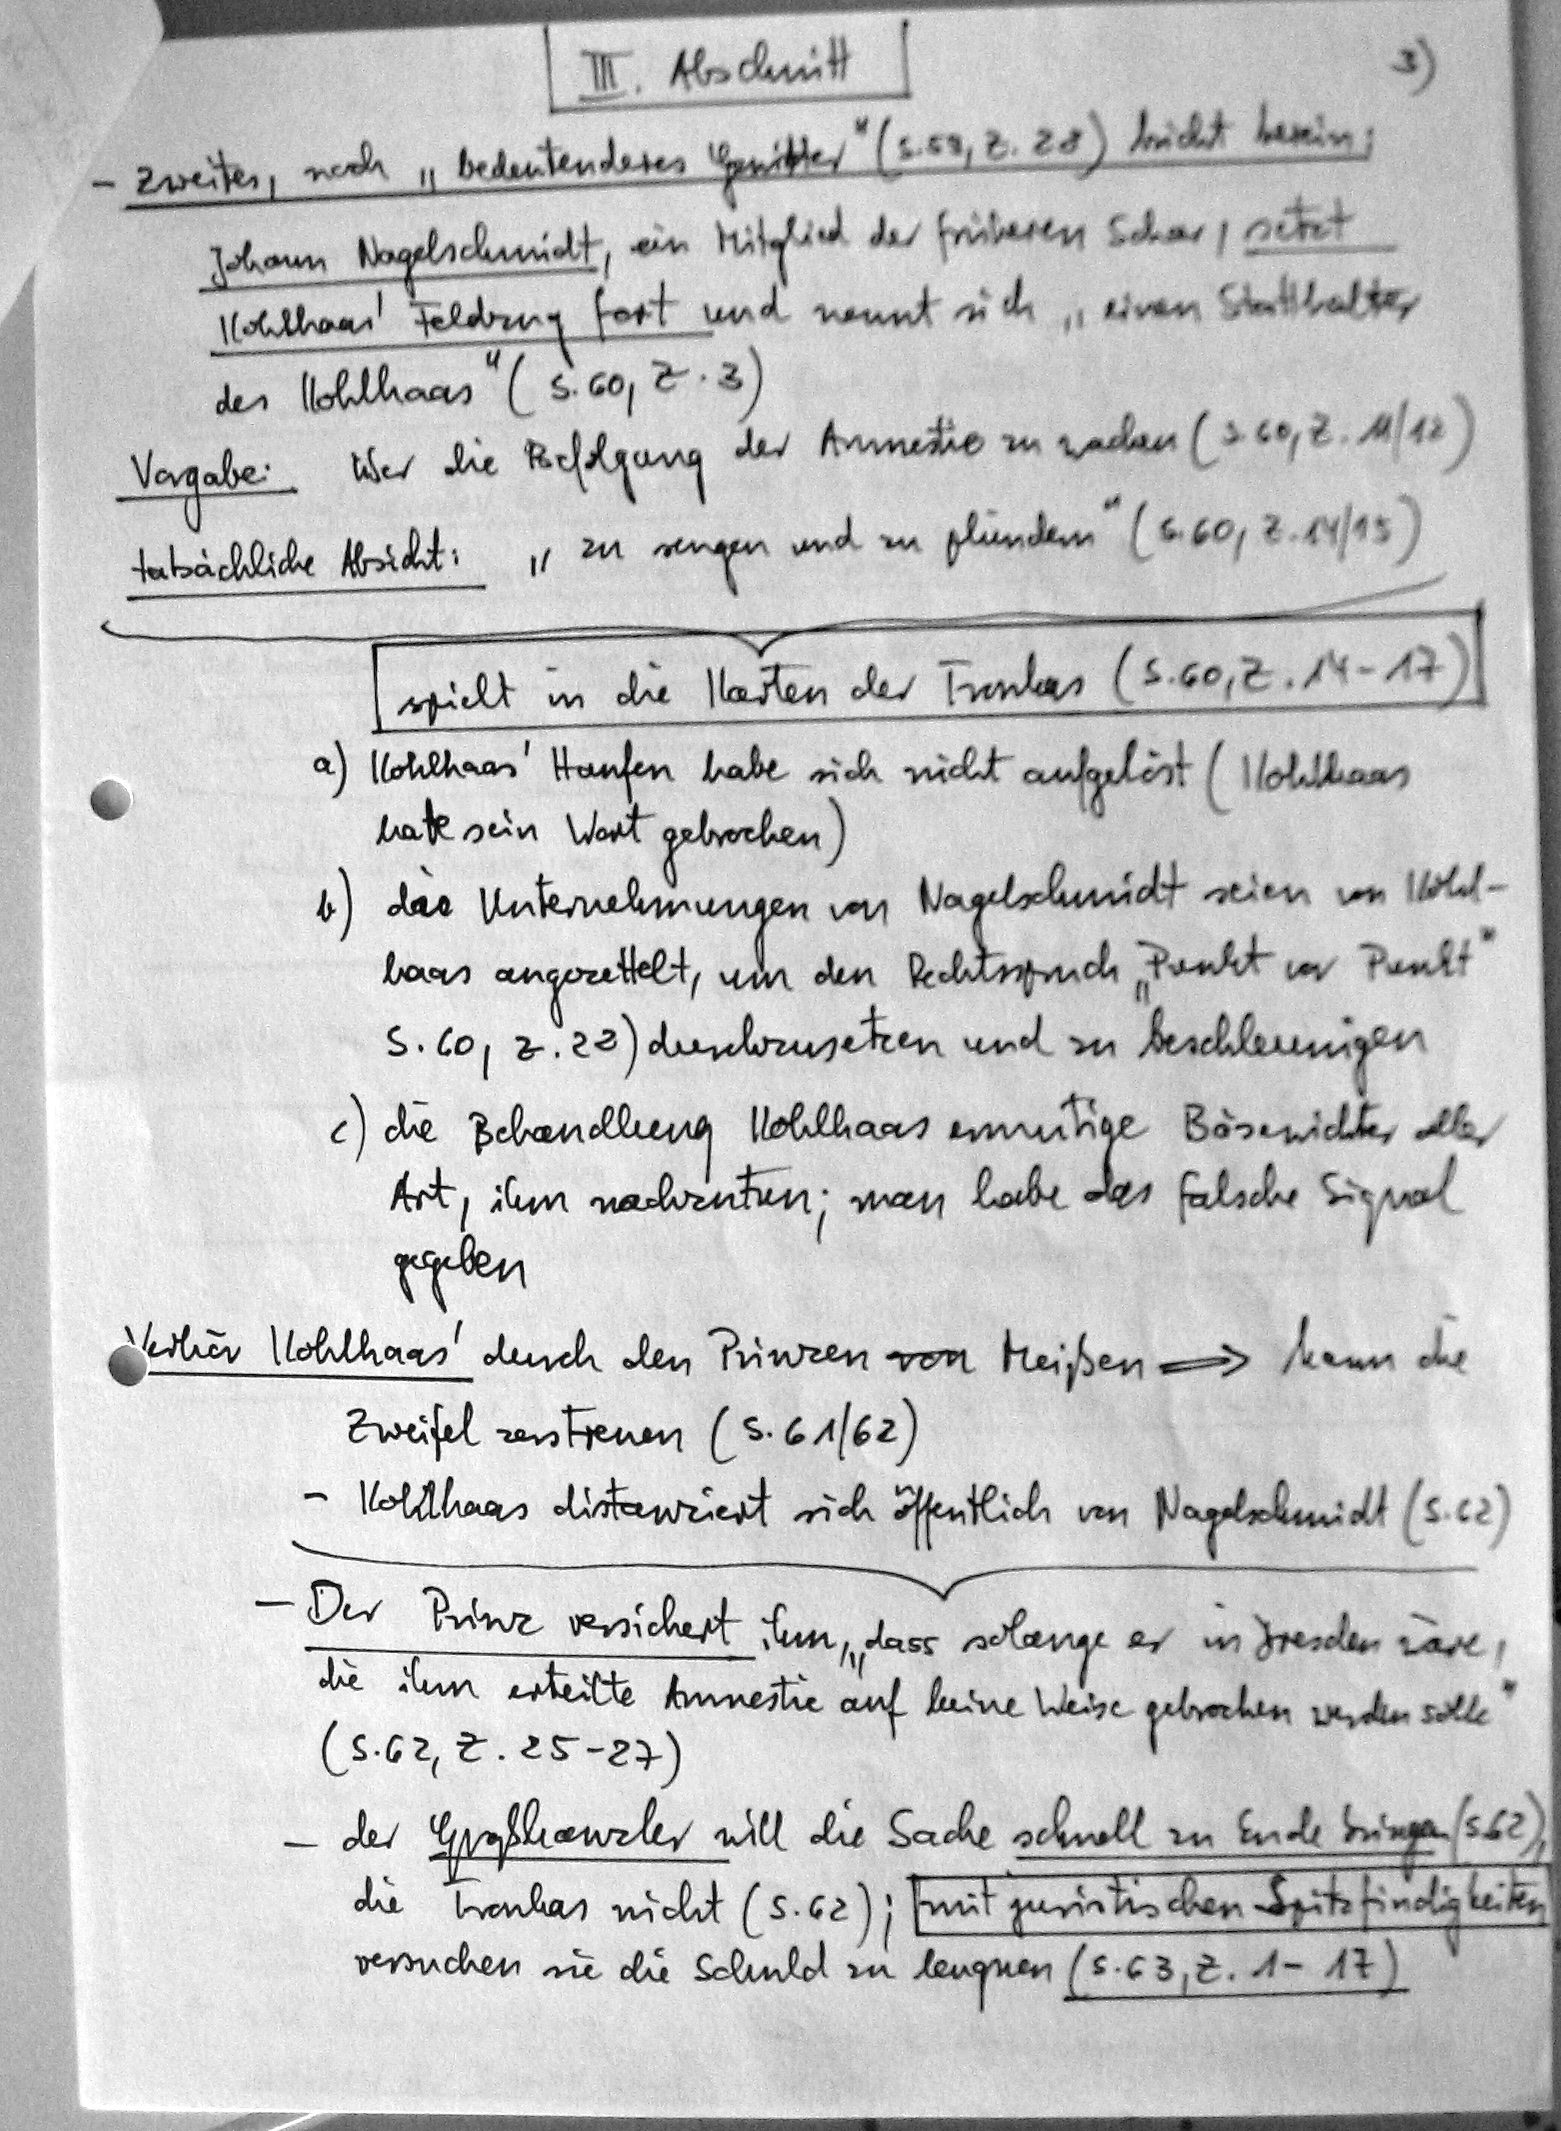 III. Abschnitt
3)
- Zweites, noch „bedeutenderes Gewitter" (S.59, Z. 28) bricht herein;
Johann Nagelschmidt, ein Mitglied der früheren Schar, setzt
Kohlhaas' Feldzug fort und nennt sich „einen Statthalter
des Kohlhaas" (S.60, Z. 3)
Vorgabe: über die Befolgung der Amnestie zu wachen (S.60, Z. 11/12)
tatsächliche Absicht: „zu sengen und zu plündern" (S.60, Z.14/15)
spielt in die Karten der Tronkas (S.60, Z. 14-17)
a) Kohlhaas' Haufen habe sich nicht aufgelöst (Kohlhaas
habe sein Wort gebrochen)
b) die Unternehmungen von Nagelschmidt seien von Kohl-
haas angezettelt, um den Rechtsspruch „Punkt vor Punkt"
S. 60, Z. 22) durchzusetzen und zu beschleunigen
c) die Behandlung Kohlhaas ermutige Bösewichter aller
Art, ihm nachzutun; man habe das falsche Signal
gegeben
Verhör Kohlhaas' durch den Prinzen von Meißen ⇒ kann die
Zweifel zerstreuen (S. 61/62)
- Kohlhaas distanziert sich öffentlich von Nagelschmidt (S.62)
- Der Prinz versichert ihm, „dass solange er in Dresden wäre,
die ihm erteilte Amnestie auf keine Weise gebrochen werden solle"
(S.62, Z. 25-27)
- der Großkanzler will die Sache schnell zu Ende bringen (S.62),
die Tronkas nicht (S.62); mit juristischen Spitzfindigkeiten
versuchen sie die Schuld zu leugnen (S.63, Z. 1-17)